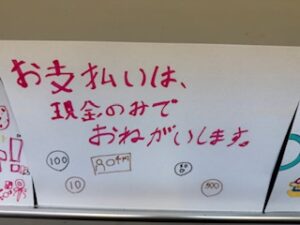 お支払いは、
現金のみで
おねがいします。
100
10
500